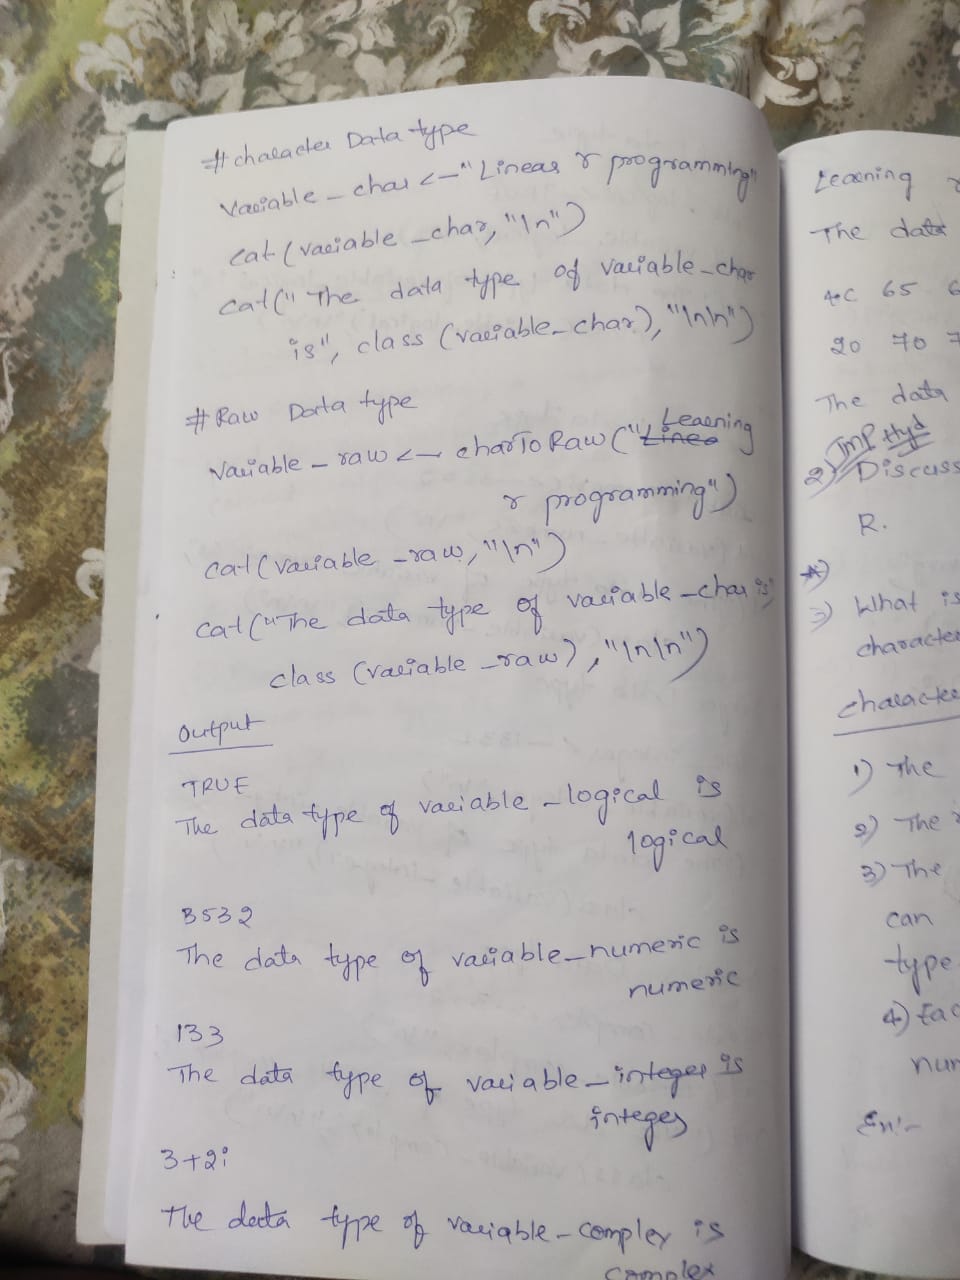 # character Data type
Variable_char <- "Linear r programming"
cat (variable_char, "\n")
cat (" The data type of variable_char
is", class (variable_char), "\n\n")
# Raw Data type
Variable_raw <- charToRaw ("Learning
r programming")
cat (variable_raw, "\n")
cat ("The data type of variable_char is
class (variable_raw), "\n\n")
Output
TRUE
The data type of variable_logical is
logical
3532
The data type of variable_numeric is
numeric
133
The data type of variable_integer is
integer
3+2i
The data type of variable_complex is
complex
Learning
The data
4c 65
20 70
The data
IMP Hyd
2) Discuss
R.
3) What is
character
character
1) The
2) The
3) The
can
type
4) Fac
num
Ex:-